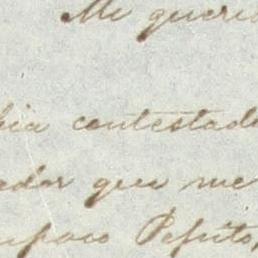 Mi querid
bia contestado
edor que me
mpoco Pepito,